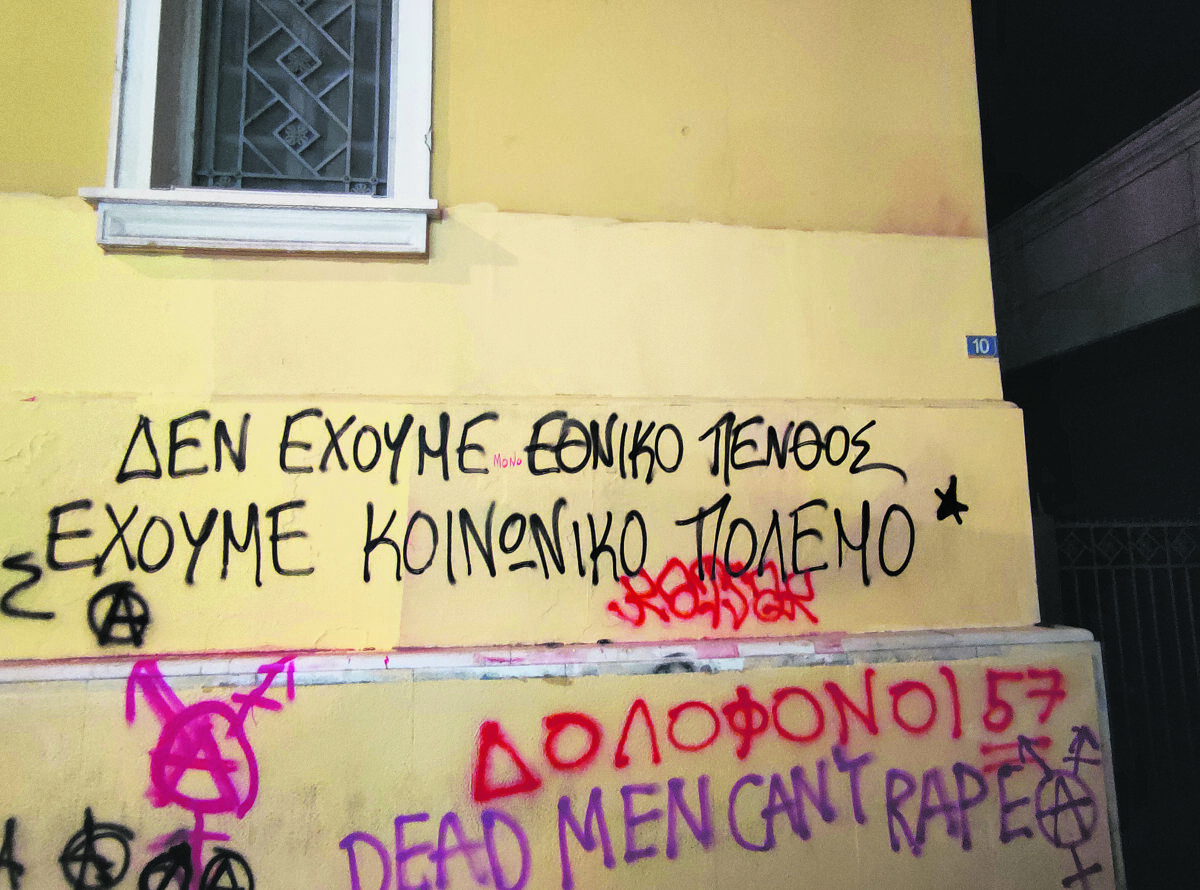 10
ΔΕΝ ΕΧΟΥΜΕ ΜΟΝΟ ΕΘΝΙΚΟ ΠΕΝΘΟΣ
ΕΧΟΥΜΕ ΚΟΙΝΩΝΙΚΟ ΠΟΛΕΜΟ
Σ
A
A
ΔΟΛΟΦΟΝΟΙ 57
DEAD MEN CAN'T RAPE
A
A
A
A
A